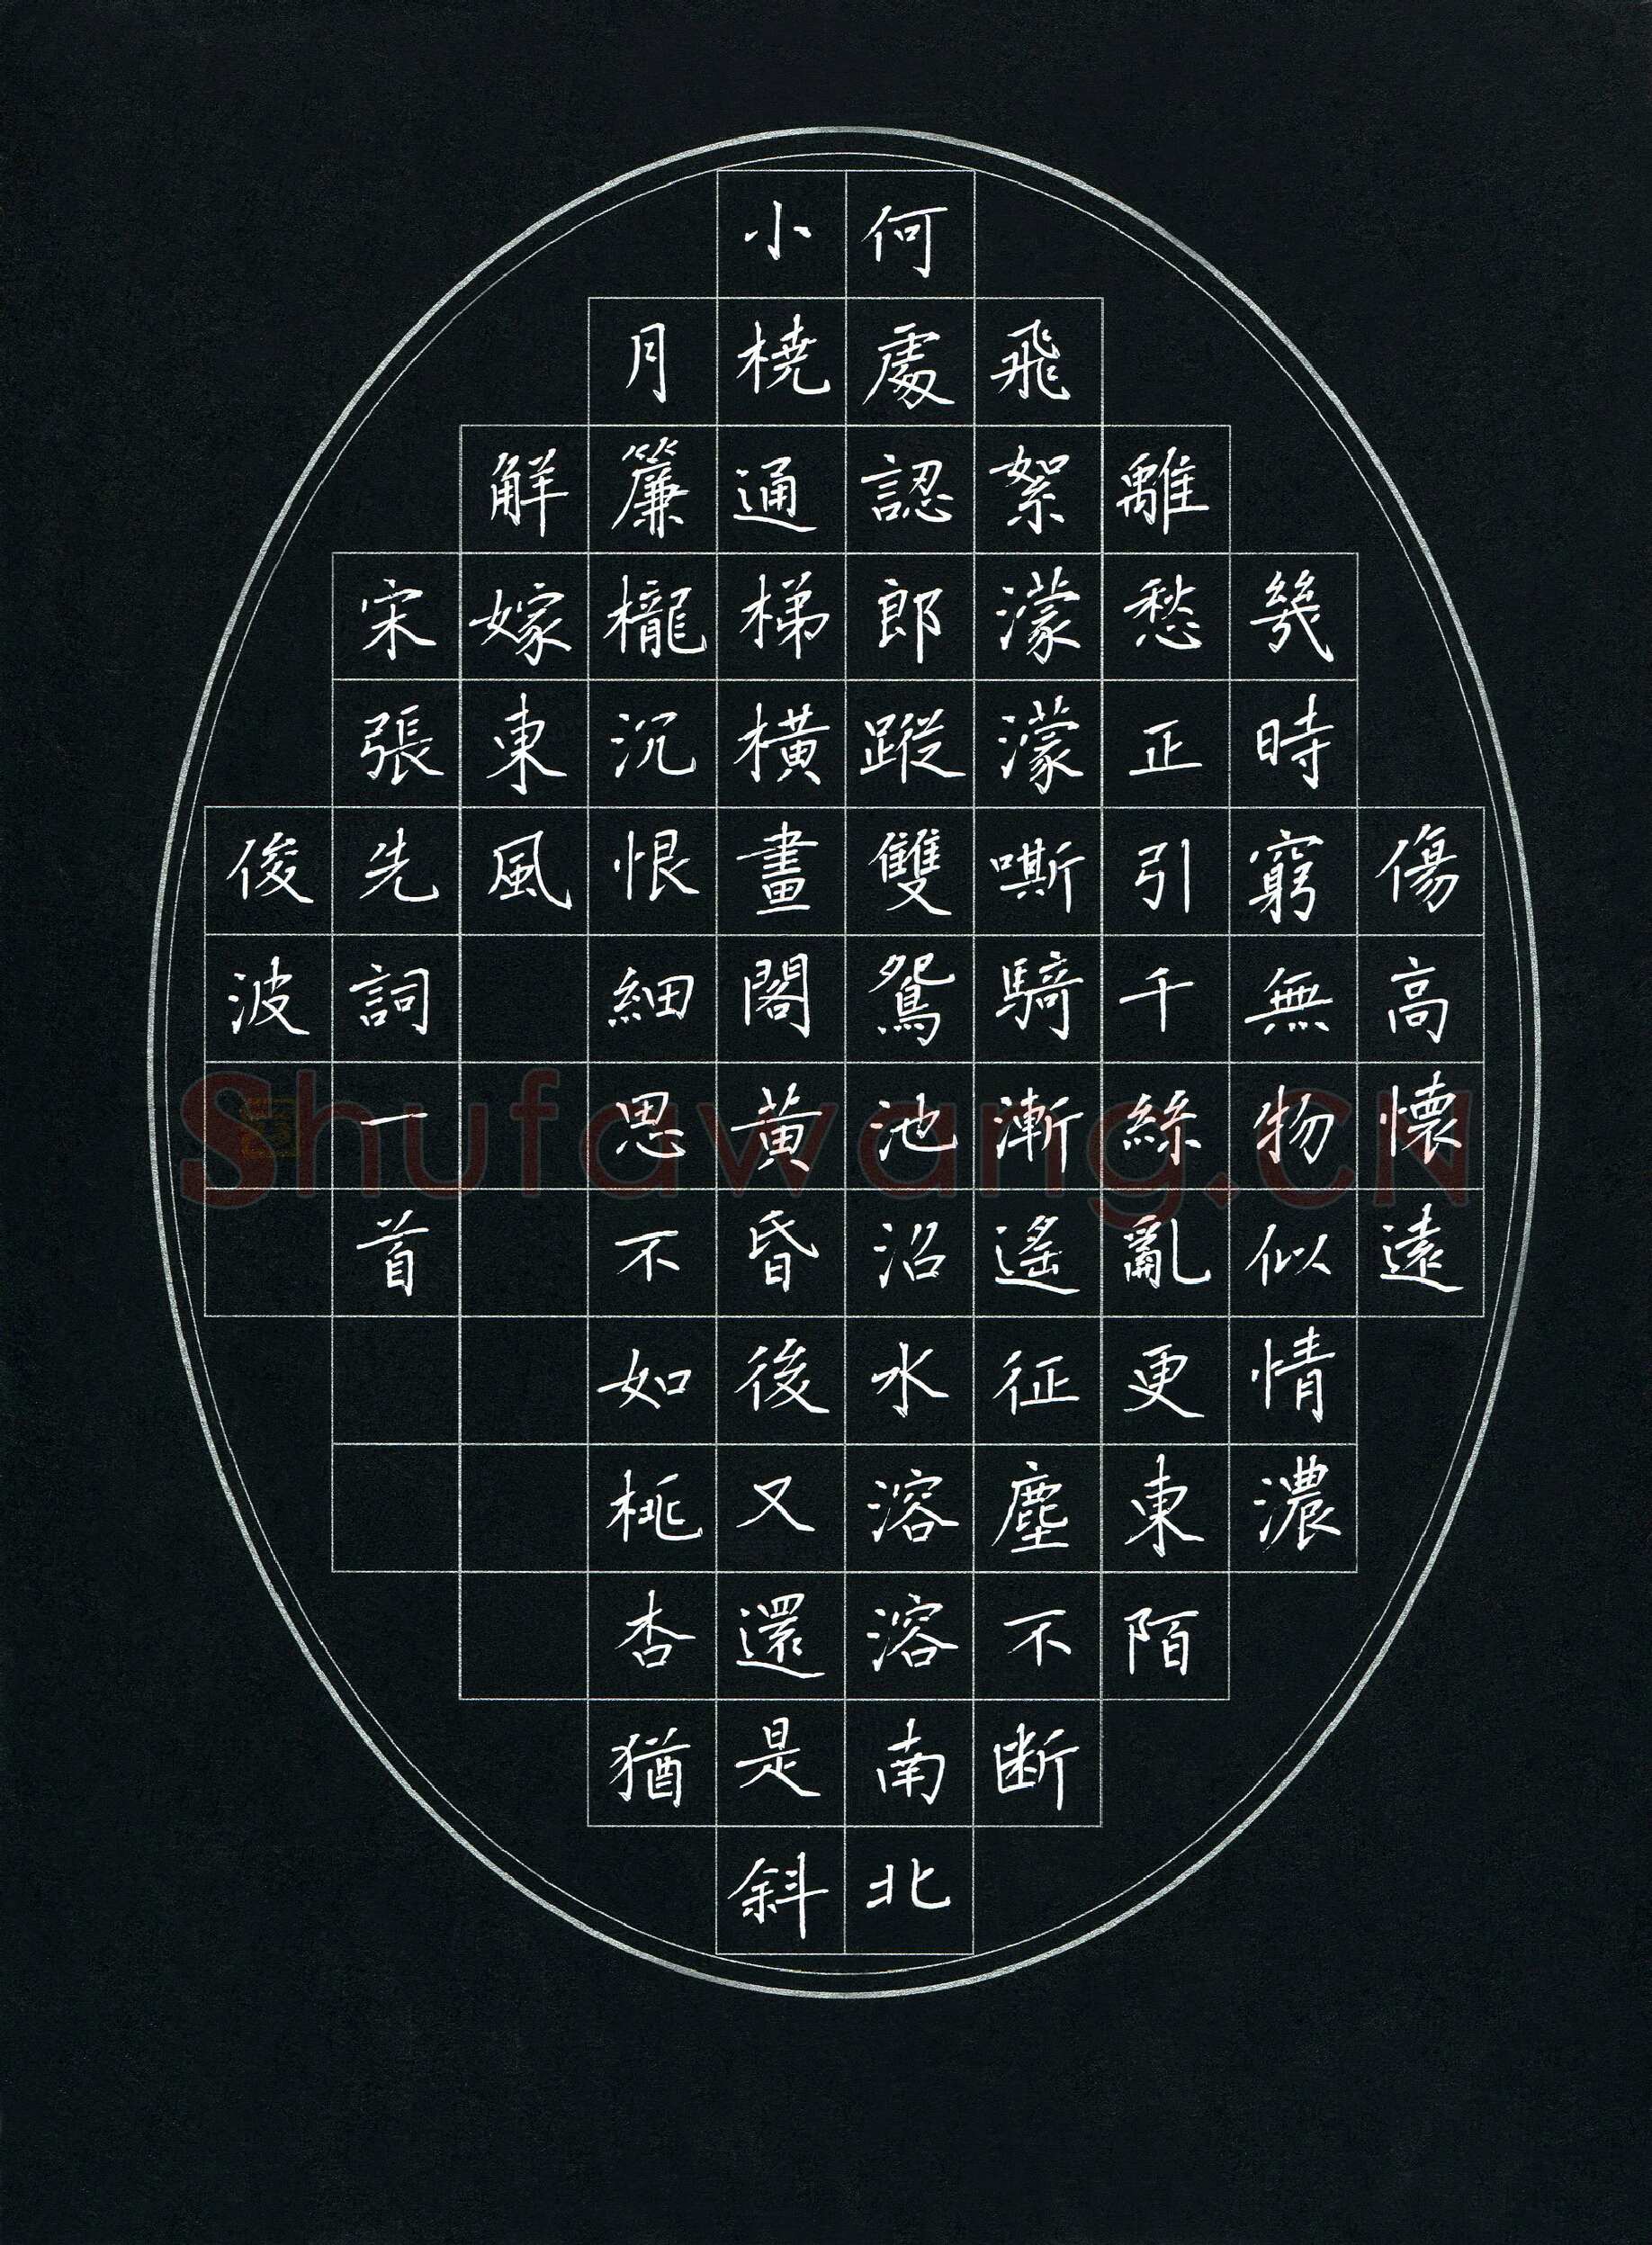 傷高懷遠
幾時窮無物似情濃
離愁正引千絲亂更東陌
飛絮濛濛嘶騎漸遙征塵不断
何處認郎蹤雙鴛池沼水溶溶南北
小橈通梯橫畫閣黃昏後又還是斜
月簾櫳沉恨細思不如桃杏猶
解嫁東風
宋張先詞一首
俊波
Shufawang.CN